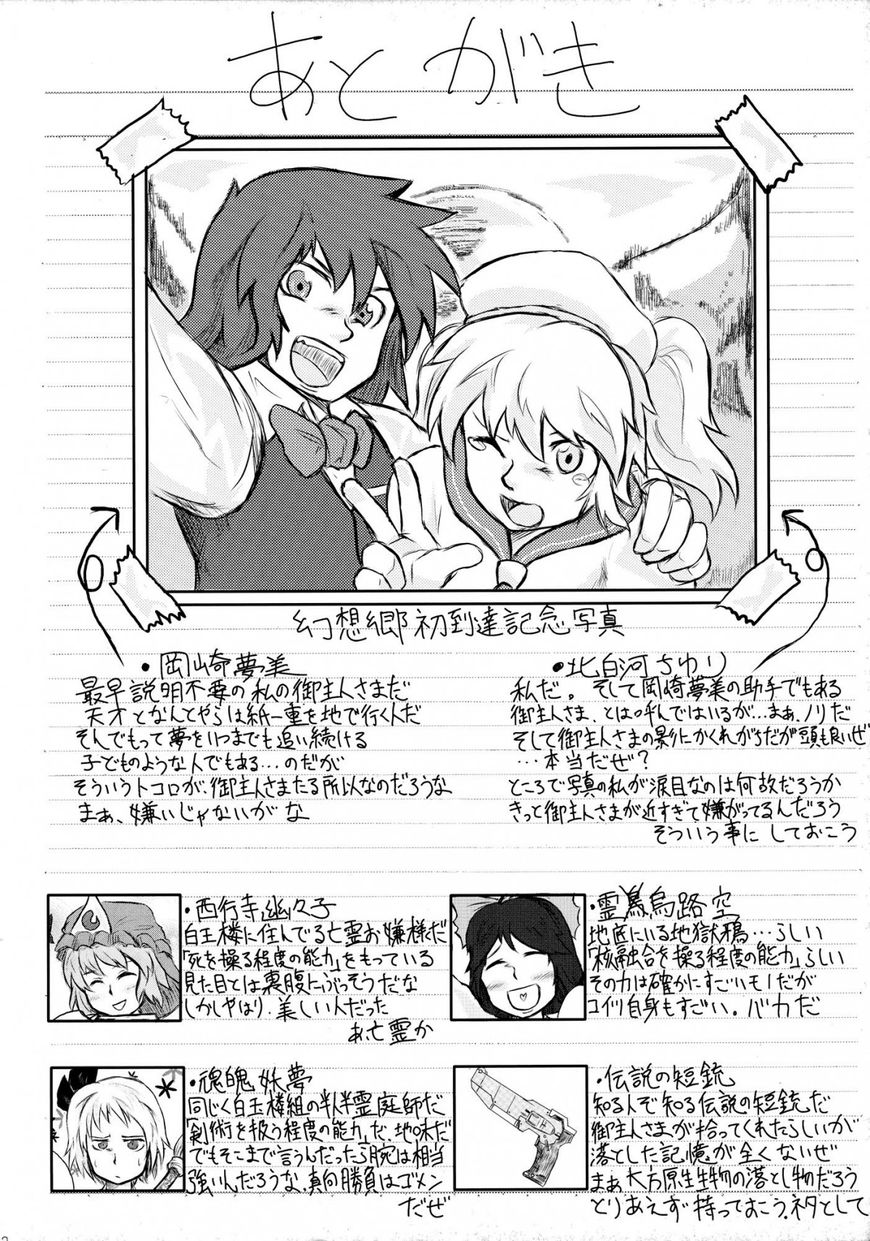 あとがき
幻想郷初到達記念写真
・岡崎夢美
最早説明不要の私の御主人さまだ
天才となんとやらは紙一重を地で行く人だ
そんでもって夢をいつまでも追い続ける
子どものような人でもある…のだが
そういうトコロが、御主人さまたる所以なのだろうな
まぁ、嫌いじゃないがな
・北白河ちゆり
私だ。そして岡崎夢美の助手でもある
御主人さま、とは呼んではいるが…まぁ、ノリだ
そして御主人さまの影にかくれがちだが頭も良いぜ
…本当だぜ?
ところで写真の私が涙目なのは何故だろうか
きっと御主人さまが近すぎて嫌がってるんだろう
そういう事にしておこう
・西行寺幽々子
白玉楼に住んでる亡霊お嬢様だ
「死を操る程度の能力」をもっている
見た目とは裏腹にぶっそうだな
しかしやはり、美しい人だった
あ、亡霊か
・霊烏路空
地底にいる地獄鴉…らしい
「核融合を操る程度の能力」らしい
その力は確かにすごいモノだが
コイツ自身もすごい。バカだ
・魂魄妖夢
同じく白玉楼組の半人半霊庭師だ
「剣術を扱う程度の能力」だ、地味だ
でもそこまで言うんだったら腕は相当
強いんだろうな、真向勝負はゴメン
だぜ
・伝説の短銃
知る人ぞ知る伝説の短銃だ
御主人さまが拾ってくれたらしいが
落とした記憶が全くないぜ
まぁ大方原生生物の落とし物だろう
とりあえず持っておこう、ネタとして